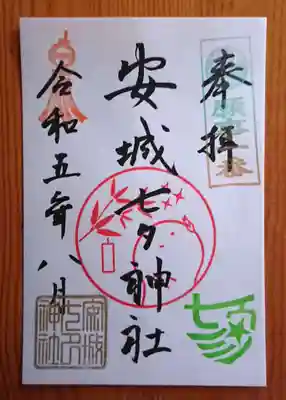 奉拝
安城七夕神社
令和五年八月
安城七夕神社